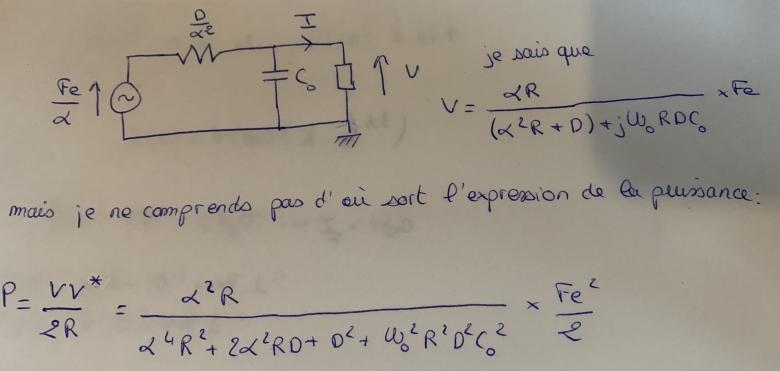 D/α²
I
Fe/α
C₀
V
je sais que
V = αR / ((α²R + D) + jW₀RDC₀) × Fe
mais je ne comprends pas d'où sort l'expression de la puissance :
P = VV*/2R = α²R / (α⁴R² + 2α²RD + D² + W₀²R²D²C₀²) × Fe²/2